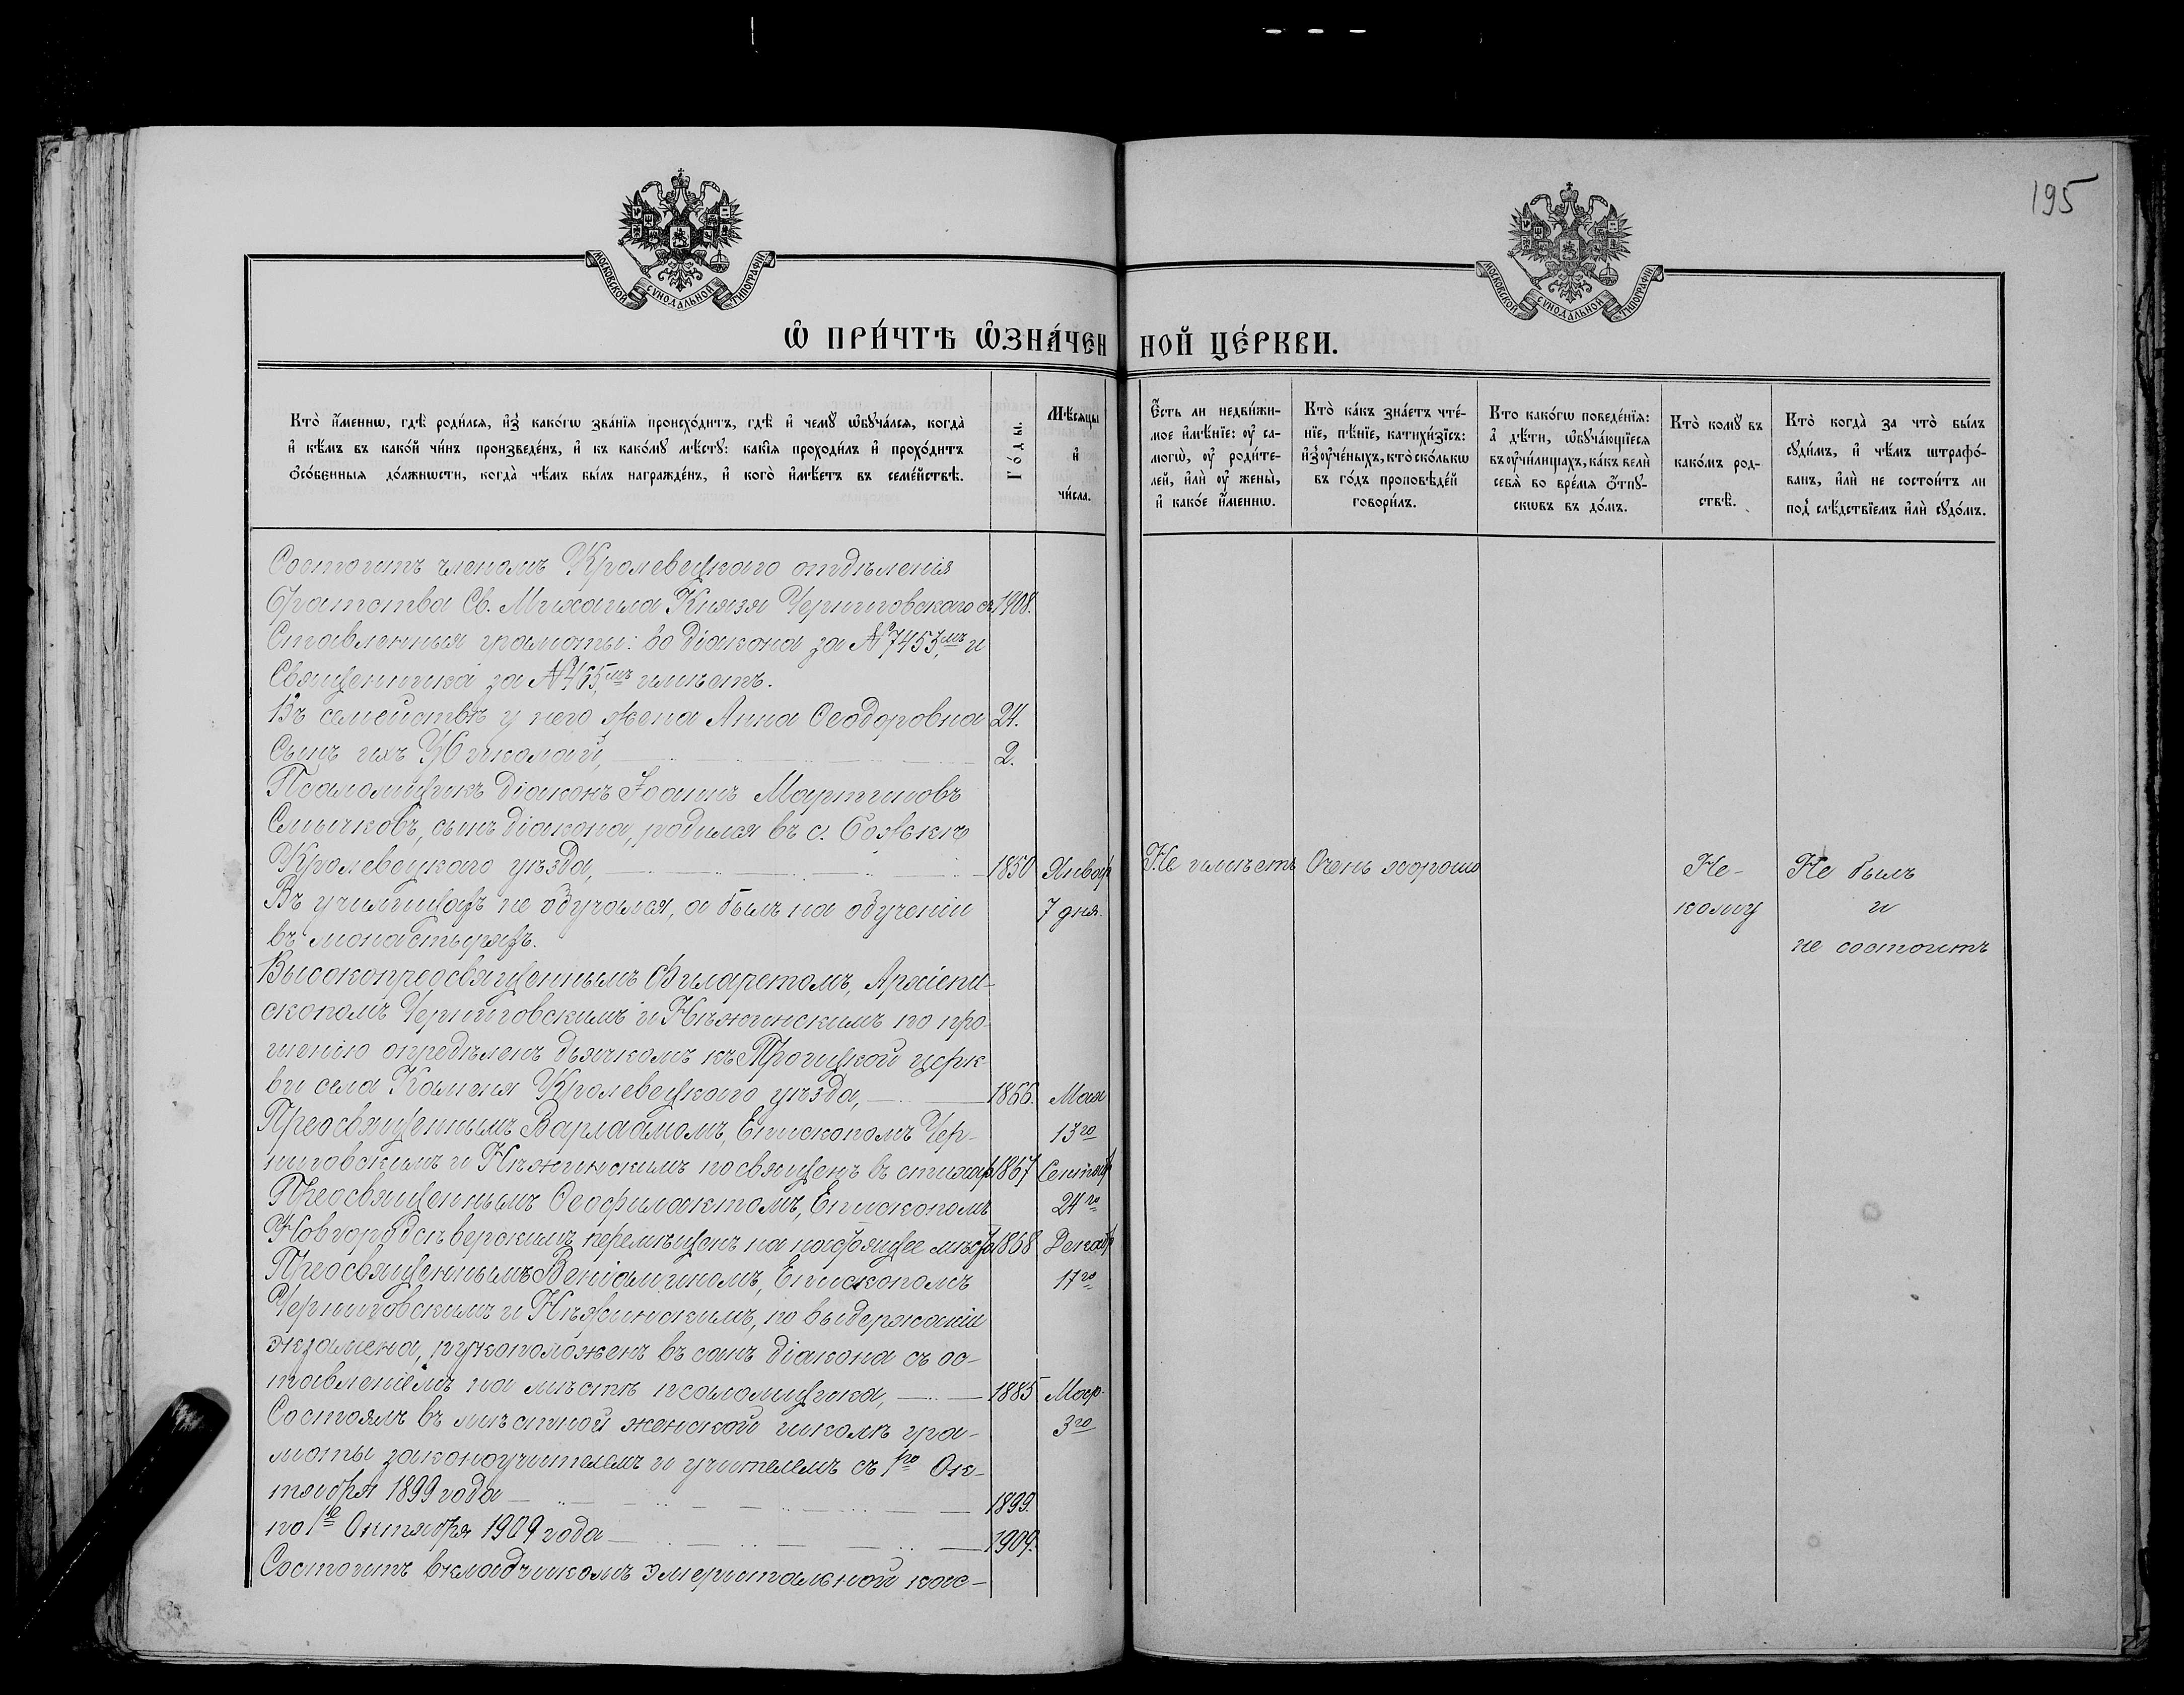 195
МОСКОВСКОЙ СѴНОДАЛЬНОЙ ТИПОГРАФІИ
МОСКОВСКОЙ СѴНОДАЛЬНОЙ ТИПОГРАФІИ
Ѡ ПРИ́ЧТѢ ѠЗНА́ЧЕН НОЙ ЦЕ́РКВИ.
Кто̀ и҆́менно, гдѣ̀ роди́лсѧ, и҆з̾ како́гѡ зва́нїѧ происхо́дитъ, гдѣ̀ и҆ чемꙋ̀ ѡ҆бꙋча́лсѧ, когда̀
и҆ кѣ́мъ въ како́й чи́нъ произведе́нъ, и҆ къ како́мꙋ мѣ́стꙋ: какі̑ѧ проходи́лъ и҆ прохо́дитъ
ѻ҆со́бенныѧ до́лжности, когда̀ чѣ́мъ бы́лъ награжде́нъ, и҆ кого̀ и҆мѣ́етъ въ семе́йствѣ.
Го́ды.
Мѣ́сѧцы
и҆
чи́сла.
Є҆́сть ли недви́жи-
мое и҆мѣ́нїе: ᲂу҆ са-
могѡ̀, ᲂу҆ роди́те-
лей, и҆лѝ ᲂу҆ жены̀,
и҆ како́е и҆́менно.
Кто̀ ка́къ зна́етъ чте́-
нїе, пѣ́нїе, катихи́зїсъ:
и҆з̾ ᲂу҆че́ныхъ, кто̀ ско́лькѡ
въ го́дъ проповѣ́дей
говори́лъ.
Кто како́гѡ поведе́нїѧ:
а҆ дѣ́ти, ѡ҆бꙋча́ющїесѧ
въ ᲂу҆чи́лищахъ, ка́къ велѝ
себѧ̀ во вре́мѧ ѻ҆́тпꙋ-
скѡвъ въ до́мъ.
Кто̀ комꙋ̀ въ
како́мъ род-
ствѣ̀.
Кто̀ когда̀ за что̀ бы́лъ
сꙋди́мъ, и҆ чѣ́мъ штрафо́-
ванъ, и҆лѝ не состои́тъ ли
под̾ слѣ́дствїемъ и҆лѝ сꙋдо́мъ.
Состоитъ членомъ Кролевецкаго отдѣленія
братства Св. Михаила Князя Черниговскаго съ 1908.
Ставленныя грамоты: во діакона за № 7453,мъ и
Священника за № 465,мъ имѣетъ.
Въ семействѣ у него жена Анна Ѳеодоровна 24.
Сынъ ихъ Николай, 2.
Псаломщикъ діаконъ Іоаннъ Мартиновъ
Смычковъ, сынъ діакона, родился въ с.
Кролевецкаго уѣзда, 1850 Январ Не имѣетъ Очень хорошо Не- Не былъ
Въ училищахъ не обучался, а былъ на обученіи 7 дня. кому и
въ монастыряхъ. не состоитъ
Высокопреосвященнымъ Филаретомъ, Архіепи-
скопомъ Черниговскимъ и Нѣжинскимъ по про-
шенію опредѣленъ дьячкомъ къ Троицкой церк-
ви села Каменя Кролевецкаго уѣзда, 1866. Мая
Преосвященнымъ Варлаамомъ, Епископомъ Чер- 13го
ниговскимъ и Нѣжинскимъ посвященъ въ стихар 1867 Сентяб
Преосвященнымъ Ѳеофилактомъ, Епископомъ 24го
Новгородсѣверскимъ перемѣщенъ на настоящее мѣсто 1868 Декаб
Преосвященнымъ Веніаминомъ, Епископомъ 17го
Черниговскимъ и Нѣжинскимъ, по выдержаніи
экзамена, рукоположенъ въ санъ діакона съ ос-
тавленіемъ на мѣстѣ псаломщика, 1885 Мар.
Состоялъ въ мѣстной женской школѣ гра- 3го
моты законоучителемъ и учителемъ съ 1го Ок-
тября 1899 года 1899.
по 1е Октября 1909 года 1909.
Состоитъ вкладчикомъ эмеритальной кас-